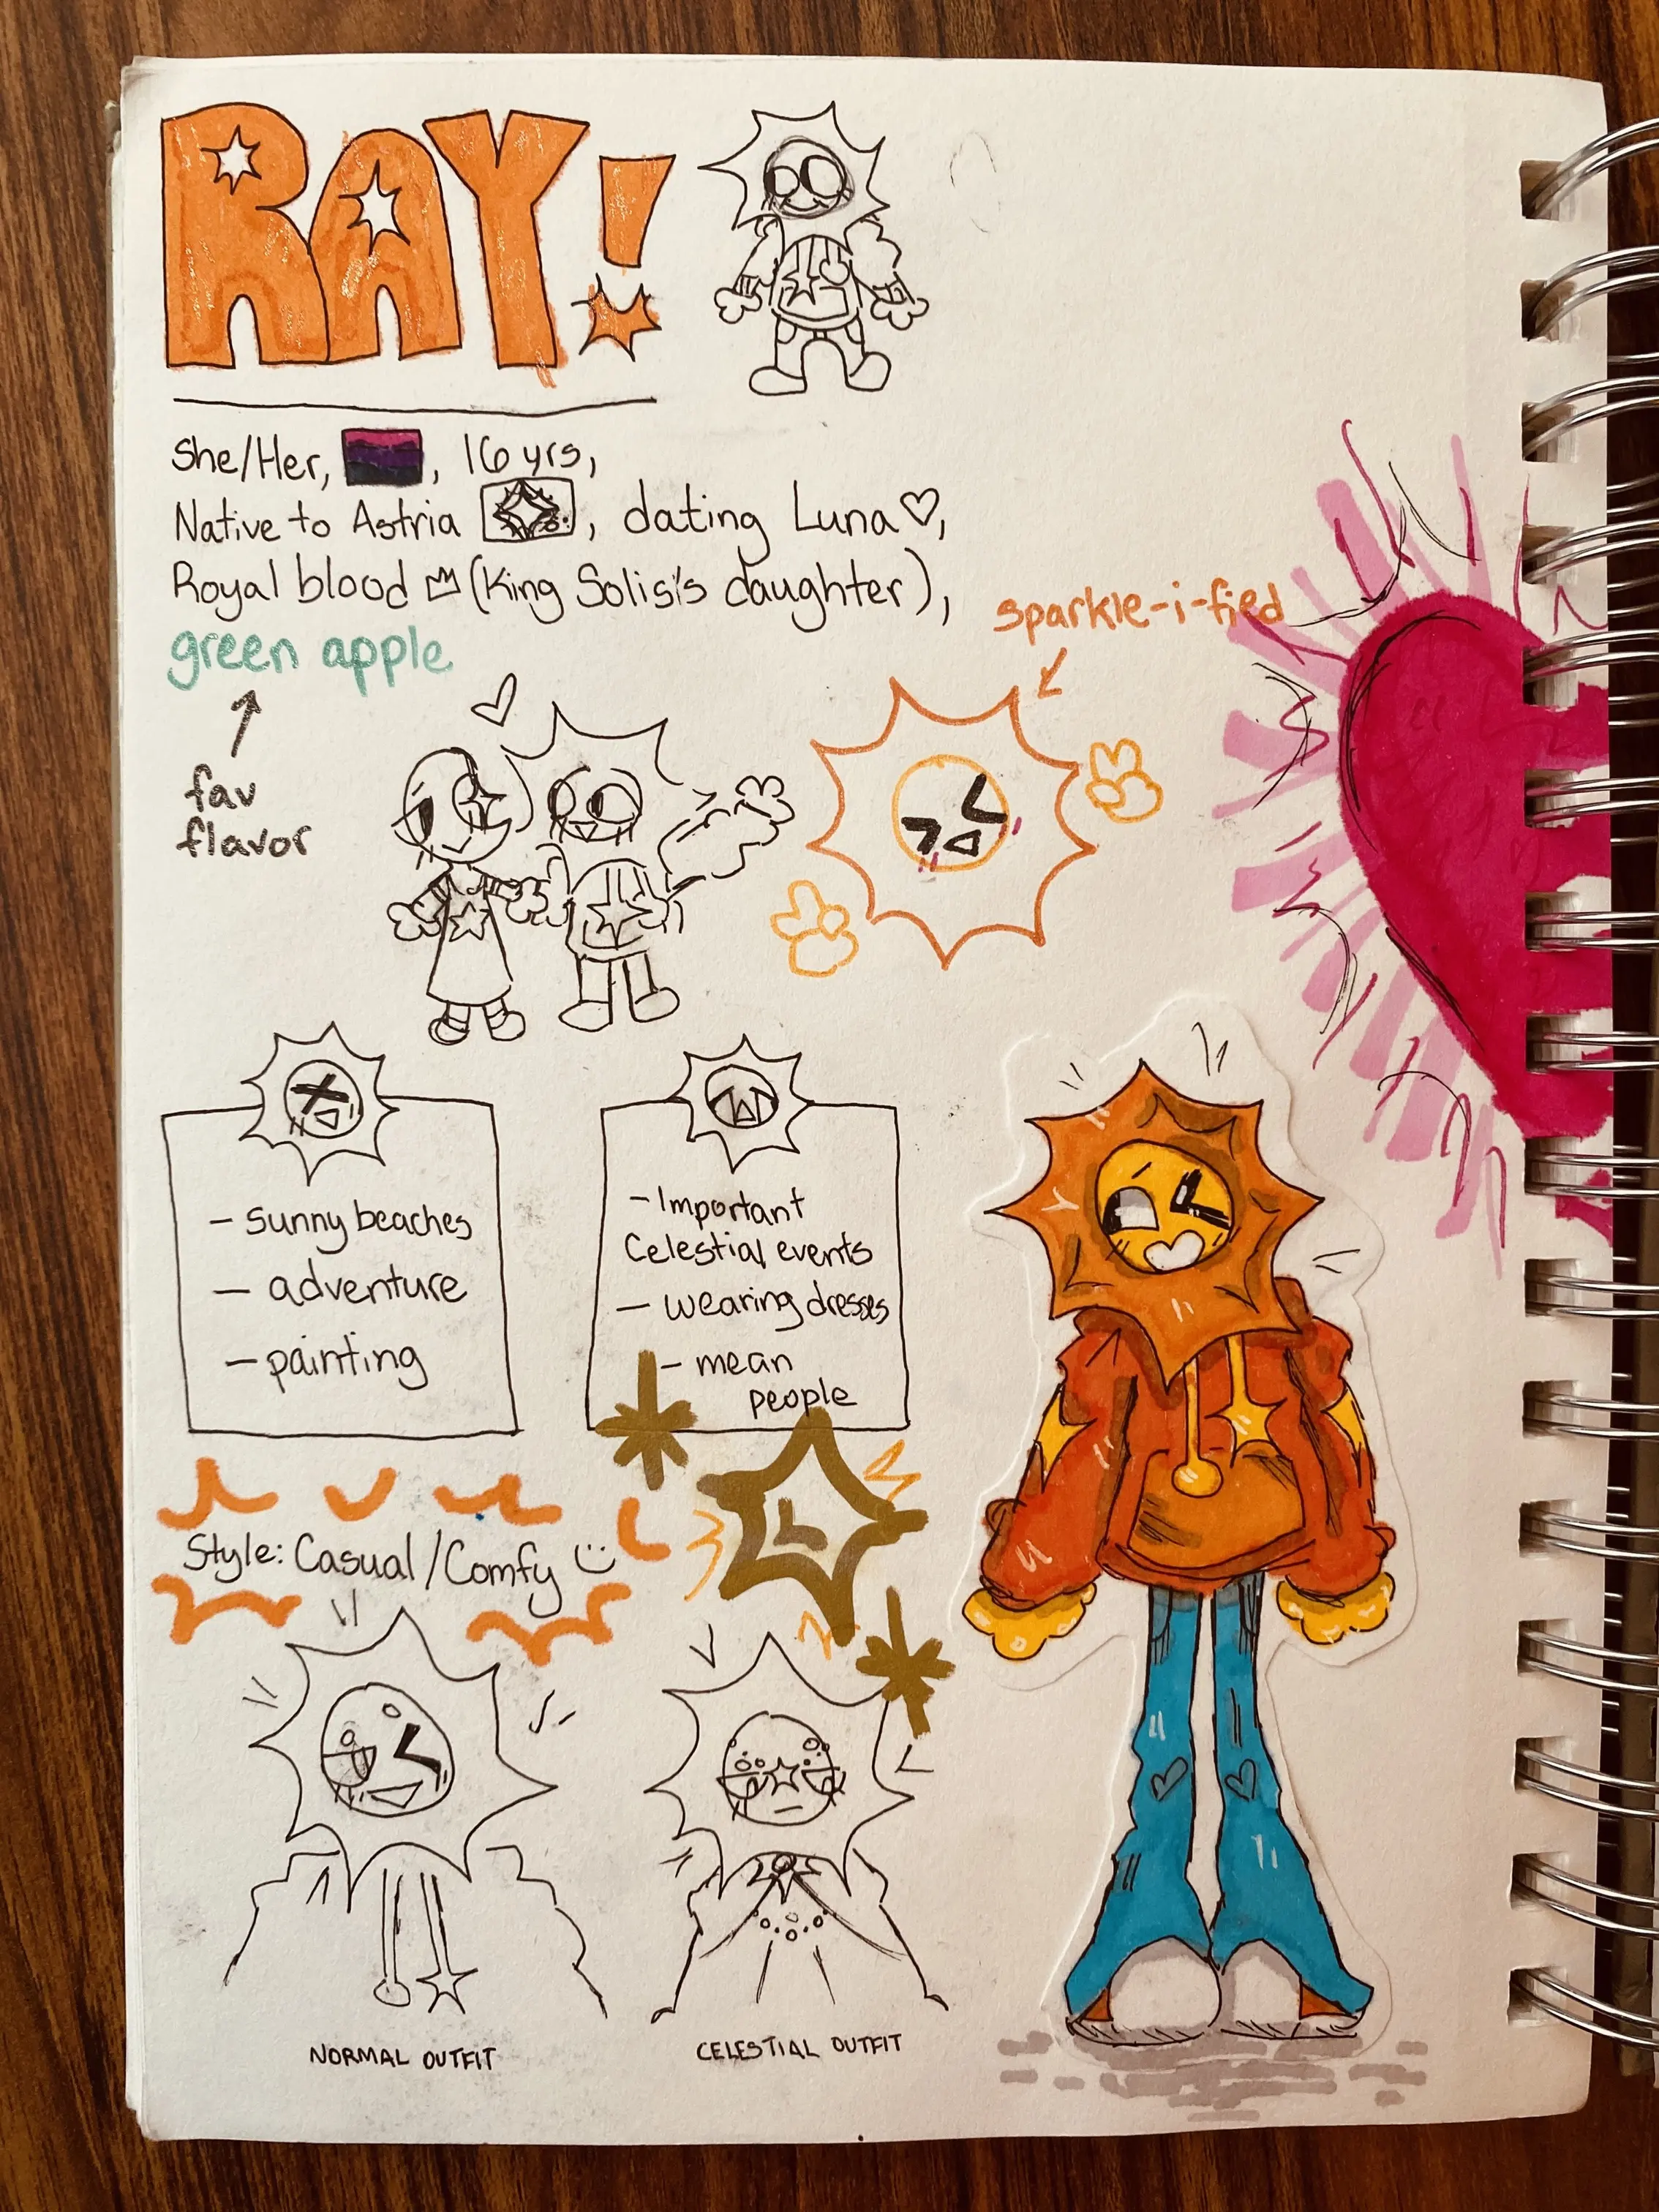 RAY!
She/Her, , 16 yrs,
Native to Astria , dating Luna♡,
Royal blood (King Solis's daughter),
green apple
fav
flavor
sparkle-i-fied
- sunny beaches
- adventure
- painting
- Important
Celestial events
- wearing dresses
- mean
people
Style: Casual/Comfy
NORMAL OUTFIT
CELESTIAL OUTFIT